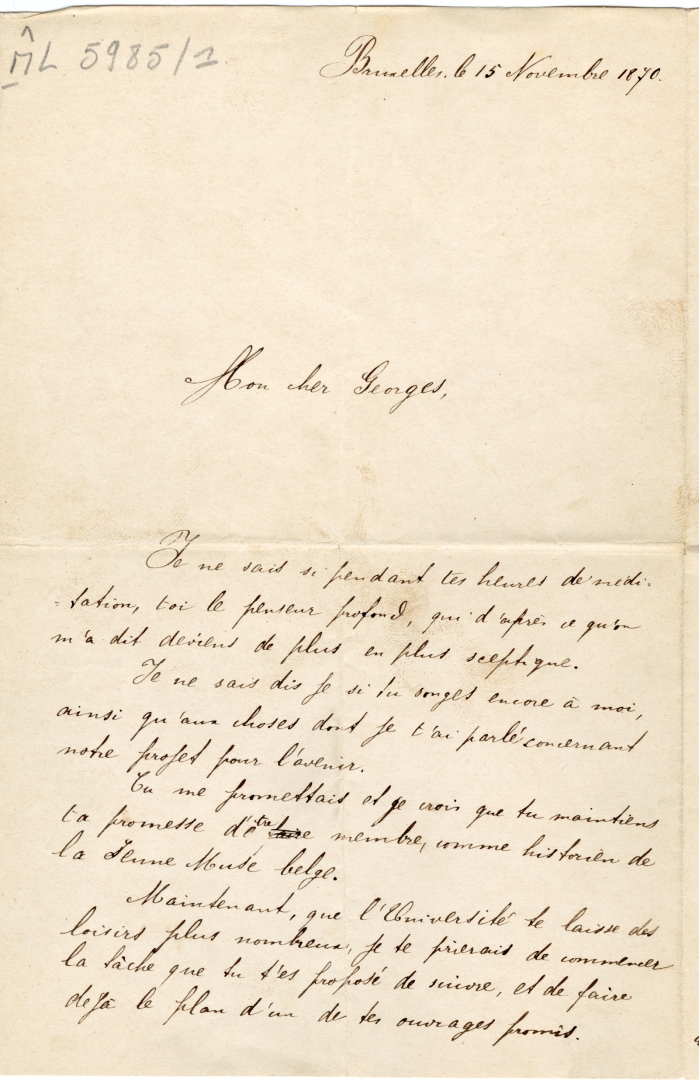 ML 5985/1
Bruxelles, le 15 Novembre 1870.
Mon cher Georges,
Je ne sais si pendant tes heures de médi-
-tation, toi le penseur profond, qui d'après ce qu'on
m'a dit deviens de plus en plus sceptique.
Je ne sais dis je si tu songes encore à moi,
ainsi qu'aux choses dont je t'ai parlé concernant
notre projet pour l'avenir.
Tu me promettais et je crois que tu maintiens
ta promesse d'être membre, comme historien de
la Jeune Muse belge.
Maintenant, que l'Université te laisse des
loisirs plus nombreux, je te prierais de commencer
la tâche que tu t'es proposé de suivre, et de faire
dejà le plan d'un de tes ouvrages promis.